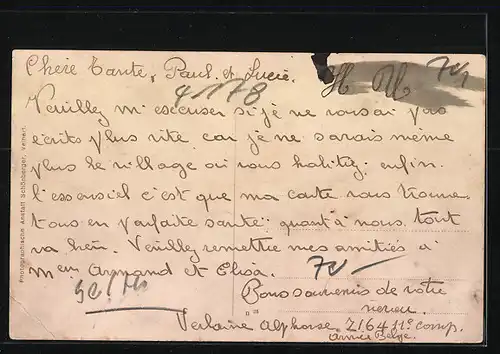 Chère Tante, Paul et Lucie.
4/178
70
Veuillez m'escuser si je ne vous ai pas
écrits plus vite car je ne savais même
plus le village où vous habitez; enfin
l'essensiel c'est que ma carte vous trouve
tous en parfaite santé; quant à nous tout
va bien. Veuillez remettre mes amitiés à
Armand et Elisa.
70
Bons souvenirs de votre
neveu.
Verlaine Alphonse, Z164 11e comp.
Armée Belge.
Photographische Anstalt Schönberger, Velhert.